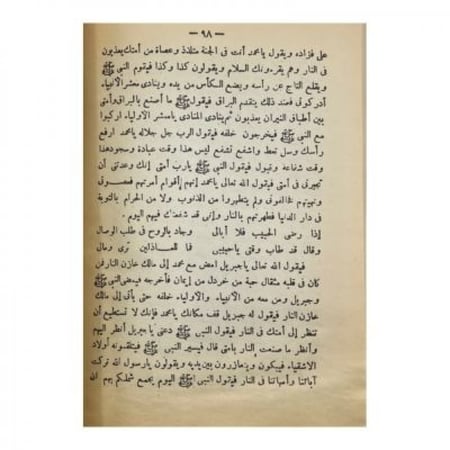 — ٩٨ —
على فؤاده ويقول يامحمد أنت فى الجنة متلذذ وعصاة من أمتك يعذبون
فى النار وهم يقرءونك السلام ويقولون كذا وكذا فيقوم النبى ﷺ
ويقلع التاج عن رأسه ويضع الكأس من يده وينادى معشر الأنبياء
أدركونى فعند ذلك يتقدم البراق فيقول ﷺ ما أصنع بالبراق وأمتى
بين أطباق النيران يعذبون ثم ينادى المنادى يامعشر الأولياء اركبوا
مع النبى ﷺ فيخرجون خلفه فيقول الرب جل جلاله يامحمد ارفع
رأسك وسل تعط واشفع تشفع ليس هذا وقت عبادة وسجود هذا
وقت شفاعة وقبول فيقول النبى ﷺ يارب أمتى إنك وعدتنى أن
تجيرنى فى أمتى فيقول الله تعالى يامحمد إنهم أقوام أمرتهم فعصونى
ونهيتهم فخالفونى ولم يتطهروا من الذنوب ولا من الحرام بالتوبة
فى دار الدنيا فطهرتهم بالنار وإنى قد شفعتك فيهم اليوم .
إذا رضى الحبيب فلا أبالى وجاد بالروح فى طلب الوصال
وقال قد طاب وقتى ياحبيبى فا للعاذلين ترى ومالى
فيقول الله تعالى ياجبريل امض مع محمد إلى مالك خازن النار فمن
كان فى قلبه مثقال حبة من خردل من إيمان فأخرجه فيمضى النبى ﷺ
وجبريل ومن معه من الأنبياء والأولياء خلفه حتى يأتى إلى مالك
خازن النار فيقول له جبريل قف مكانك يامحمد فإنك لا تستطيع أن
تنظر إلى أمتك فى النار فيقول النبى ﷺ دعنى ياجبريل أنظر اليهم
وأنظر ما صنعت النار بأمتى قال فيسير النبى ﷺ فيتلقونه أولاد
الأشقياء فيبكون ويزمازرون بين يديه ويقولون يارسول الله تركت
آباءنا وأمهاتنا فى النار فيقول النبى ﷺ اليوم يجمع شملكم بهم الله